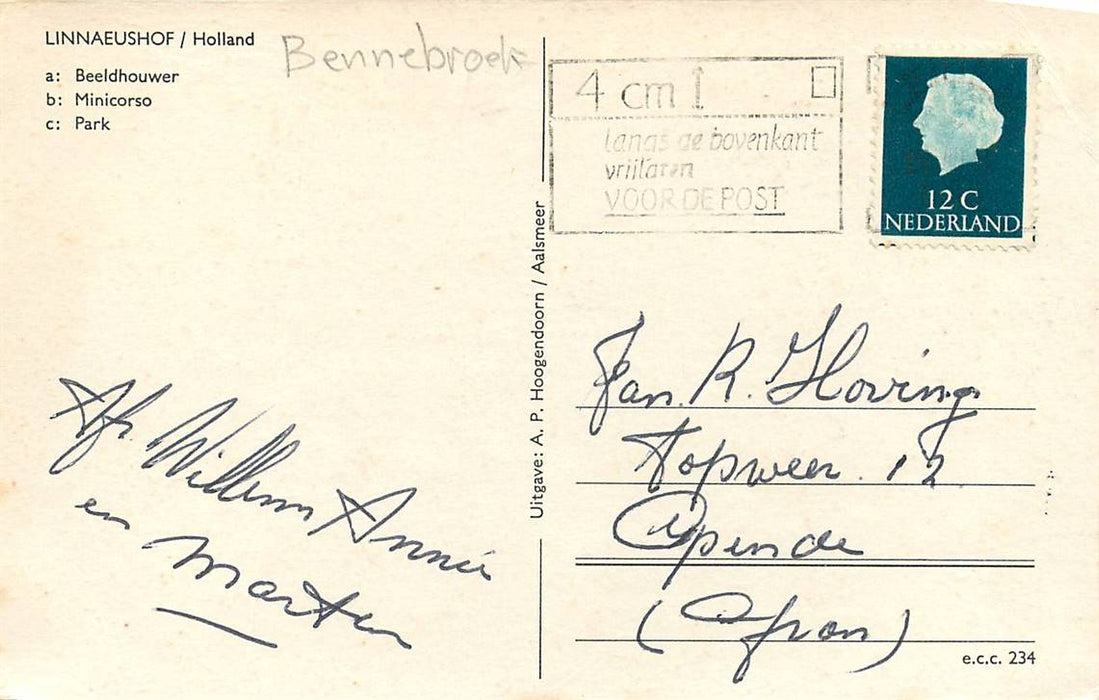 LINNAEUSHOF / Holland
Bennebroek
a: Beeldhouwer
b: Minicorso
c: Park
4 cm
langs de bovenkant
vrijlaten
VOOR DE POST
12 C
NEDERLAND
Uitgave: A. P. Hoogendoorn / Aalsmeer
Afz. Willem Annie
en Marten
Jan. R. Hoving
Topweer. 12
Opende
(Gron)
e.c.c. 234